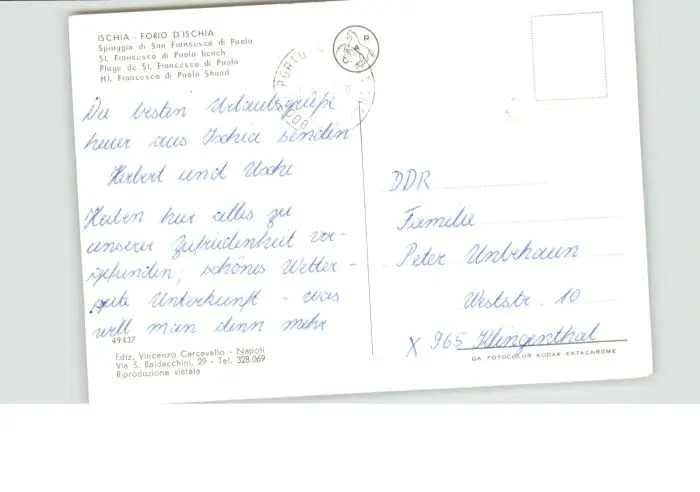 ISCHIA - FORIO D'ISCHIA
Spiaggia di San Francesco di Paola
St. Francesco di Paola beach
Plage de St. Francesco di Paola
Hl. Francesco di Paola Strand
PORTO
Die besten Urlaubsgrüße
heuer aus Ischia senden
Herbert und Usche
Haben hier alles zu
unserer Zufriedenheit vor-
gefunden; schönes Wetter -
gute Unterkunft - was
will man denn mehr
49437
Ediz. Vincenzo Carcavallo - Napoli
Via S. Baldacchini, 29 - Tel. 328.069
Riproduzione vietata
DDR
Familie
Peter Unbehaun
Weststr. 10
X 965 Klingenthal
DA FOTOCOLOR KODAK EKTACHROME